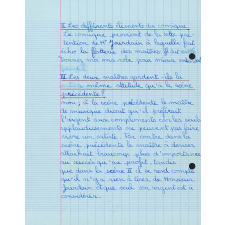 II Les différents éléments du comique.
Le comique provient de la sotte pré-
tention de Mr Jourdain à laquelle fait
écho la flatterie des maîtres.
II Les deux maîtres gardent-ils la
même attitude qu'à la scène
précédente?
non; à la scène précédente le maître
de musique disait qu'il préférait
l'argent aux compliments car les seuls
applaudissements ne peuvent pas faire
vivre un artiste. Par contre dans la
scène, précédente le maître à danser
attachait beaucoup plus d'importance
au succès qu'au profit, tandis
que dans la scène II il se rend compte
qu'il n'y a rien à tirer de Monsieur
Jourdain et que seul son argent est à